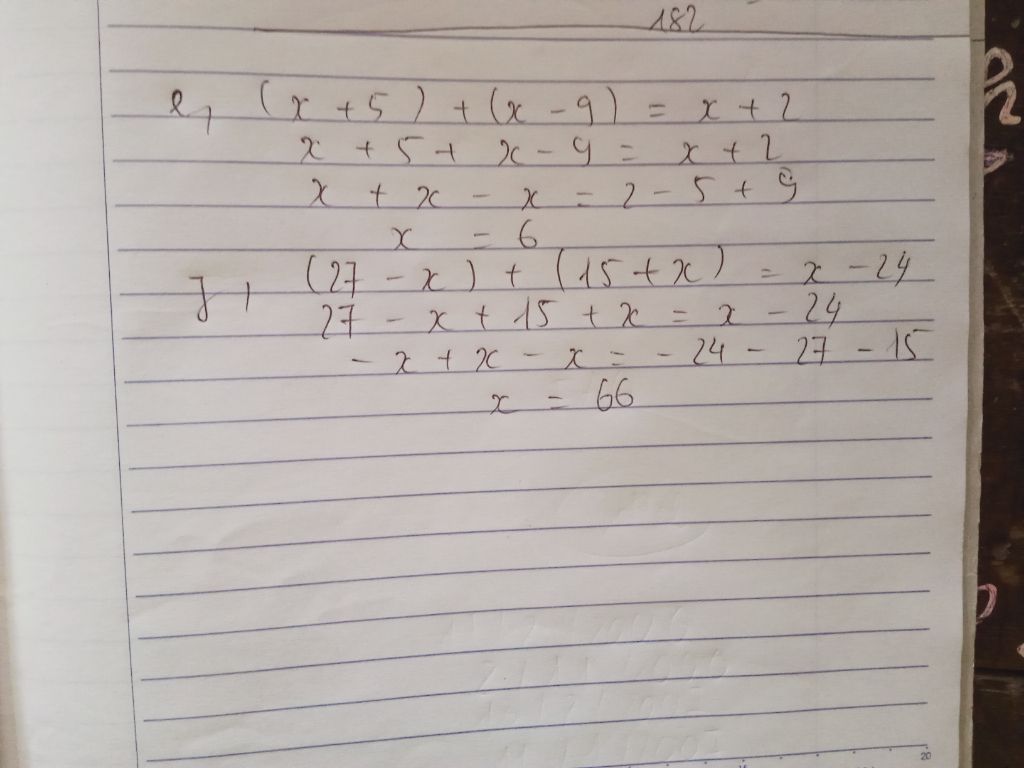 182
e, (x + 5) + (x - 9) = x + 2
x + 5 + x - 9 = x + 2
x + x - x = 2 - 5 + 9
x = 6
(27 - x) + (15 + x) = x - 24
27 - x + 15 + x = x - 24
- x + x - x = - 24 - 27 - 15
x = 66
20